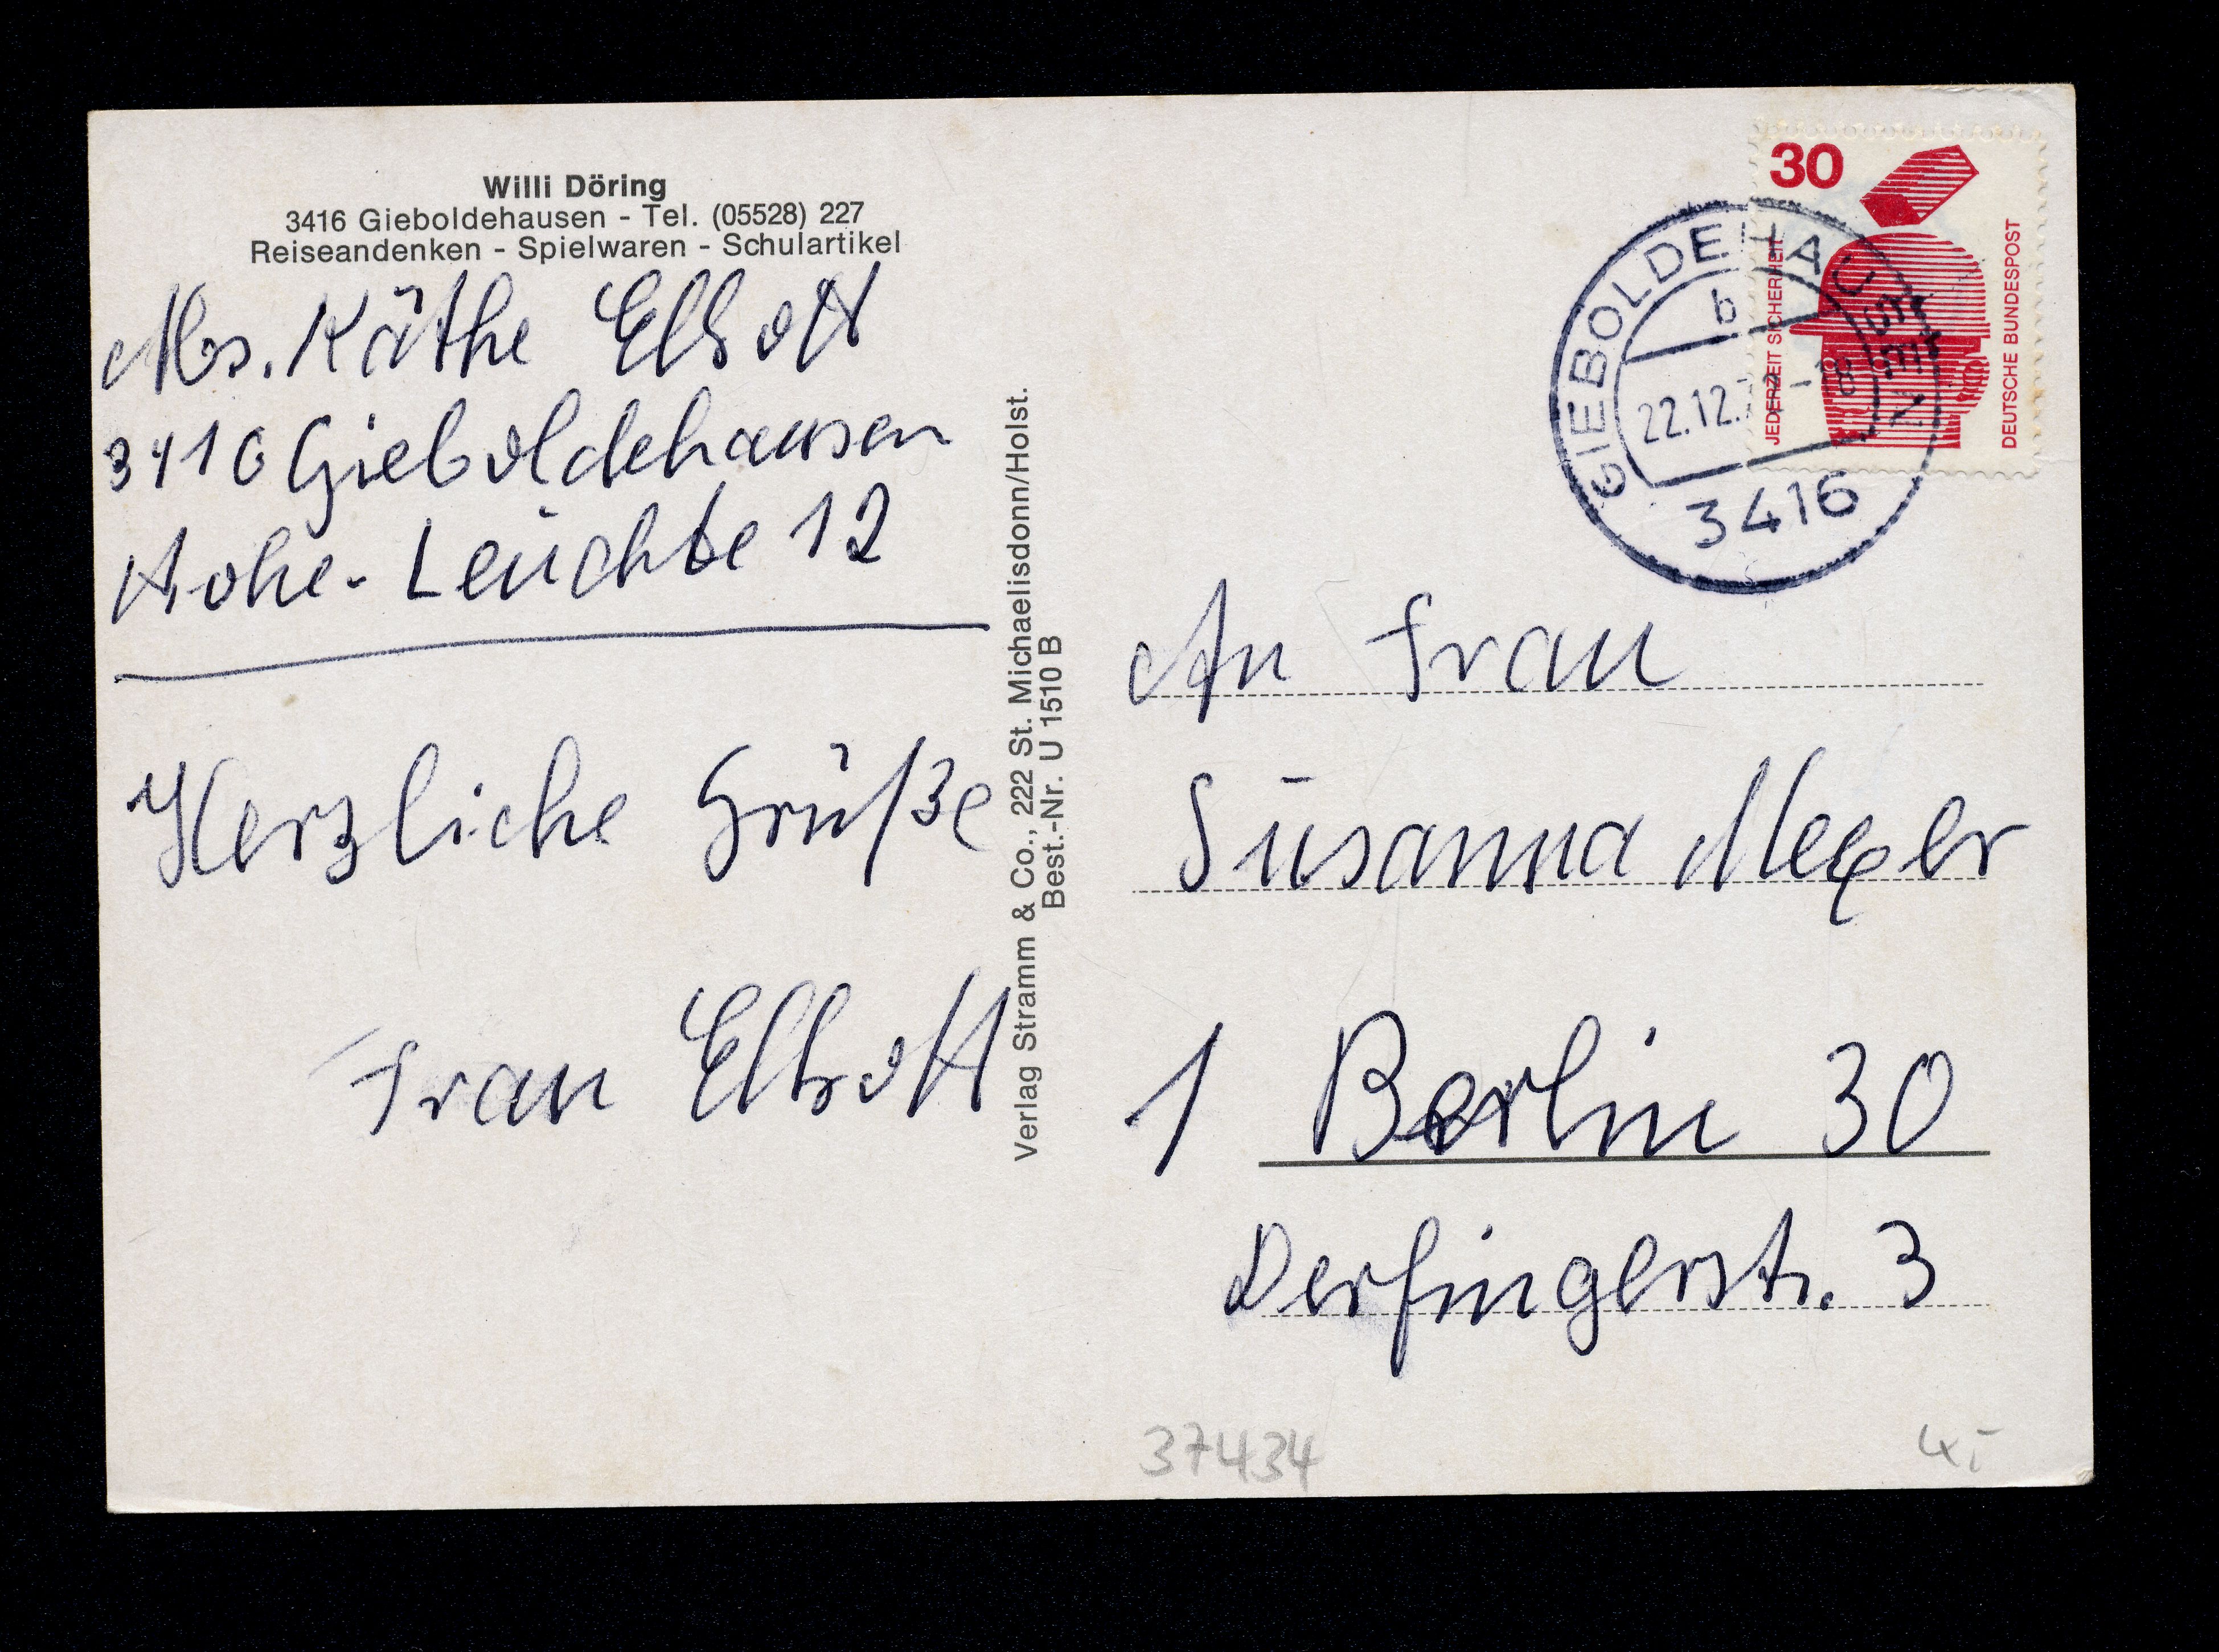 Willi Döring
3416 Gieboldehausen - Tel. (05528) 227
Reiseandenken - Spielwaren - Schulartikel
Käthe Ellrott
3416 Gieboldehausen
Hohe-Leuchte 12
Herzliche Grüße
Frau Ellrott
Verlag Stramm & Co., 222 St. Michaelisdonn/Holst.
Best.-Nr. U 1510 B
30
JEDERZEIT SICHERHEIT
DEUTSCHE BUNDESPOST
GIEBOLDEHAUSEN
b
22.12.
3416
An Frau
Susanna Meyer
1 Berlin 30
Derfingerstr. 3
37434
4,-